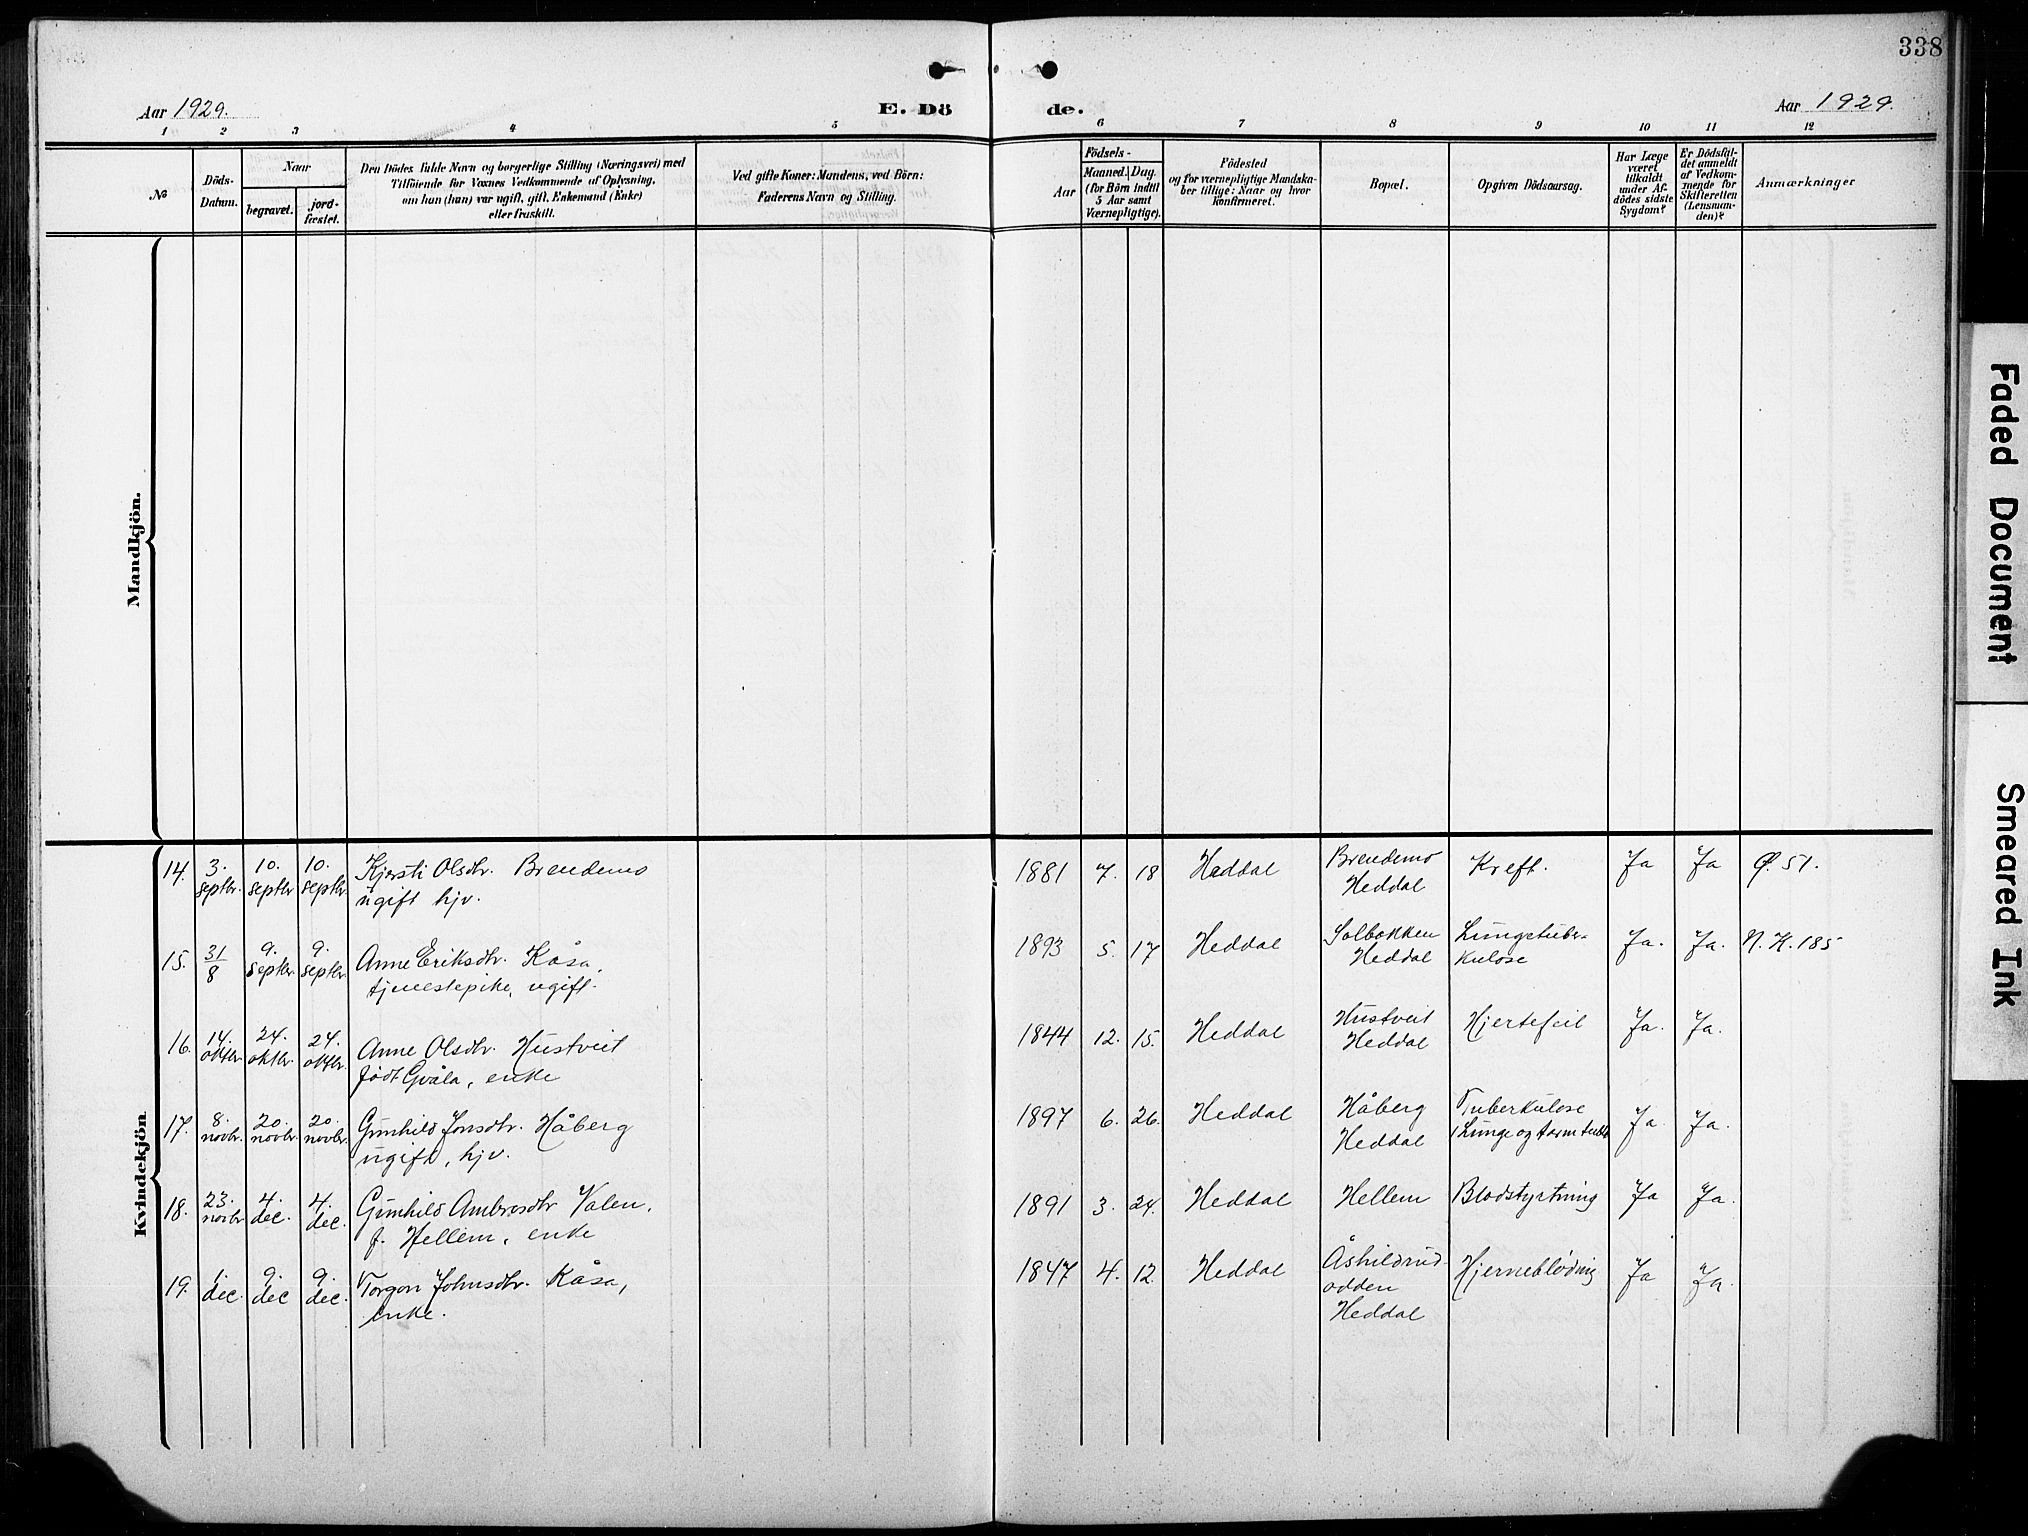 338
Aar 1929.
E. Dö
de.
Aar 1929.
1 2 3 4 5 6 7 8 9 10 11 12
No
Döds-
Datum.
Naar
begravet.
jord-
fæstet.
Den Dödes fulde Navn og borgerlige Stilling (Næringsvei) med
Tilföiende for Voxnes Vedkommende af Oplysning,
om hun (han) var ugift, gift, Enkemand (Enke)
eller fraskilt.
Ved gifte Koner: Mandens, ved Börn:
Faderens Navn og Stilling.
Aar
Födsels-
Maaned. Dag.
(for Börn indtil
5 Aar samt
Værnepligtige).
Födested
og for værnepligtige Mandska-
ber tillige: Naar og hvor
konfirmeret.
Bopæl.
Opgiven Dödsaarsag.
Har Læge
været
tilkaldt
under Af-
dödes sidste
Sygdom?
Er Dödsfal-
det anmeldt
af Vedkom-
mende for
Skifteretten
(Lensman-
den)?
Anmærkninger
Mandkjön.
Kvindekjön
14. 3. septbr. 10. septbr. 10. septbr. Kjersti Olsdtr. Brendemo
ugift hjv.
1881 7. 18 Heddal Brendemo Heddal Kreft. Ja Ja Ø. 51.
15. 31/8 9. septbr. 9. septbr. Anne Eriksdtr. Kåsa,
tjenestepike, ugift.
1893 5. 17 Heddal Solbakken Heddal Lungetuber-
kulose Ja. Ja. N. K. 185
16. 14. oktbr. 24. oktbr. 24. oktbr. Anne Olsdtr. Hustveit
født Gvåla, enke
1844 12. 15. Heddal Hustveit Heddal Hjertefeil Ja. Ja.
17. 8. novbr. 20. novbr. 20. novbr. Gunhild Jonsdtr. Håberg
ugift, hjv.
1897 6. 26. Heddal Håberg Heddal Tuberkulose
Lunge og tarm Ja. Ja.
18. 23. novbr 4. dec. 4. dec. Gunhild Ambrosdtr Valen,
f. Hellem, enke
1891 3. 24. Heddal Hellem Blodstyrtning Ja Ja.
19. 1. dec. 9. dec 9. dec. Torgon Johnsdtr. Kåsa,
enke.
1847 4. 12. Heddal Åshildrud-
odden
Heddal Hjerneblødnig Ja Ja.
Faded Document
Smeared Ink